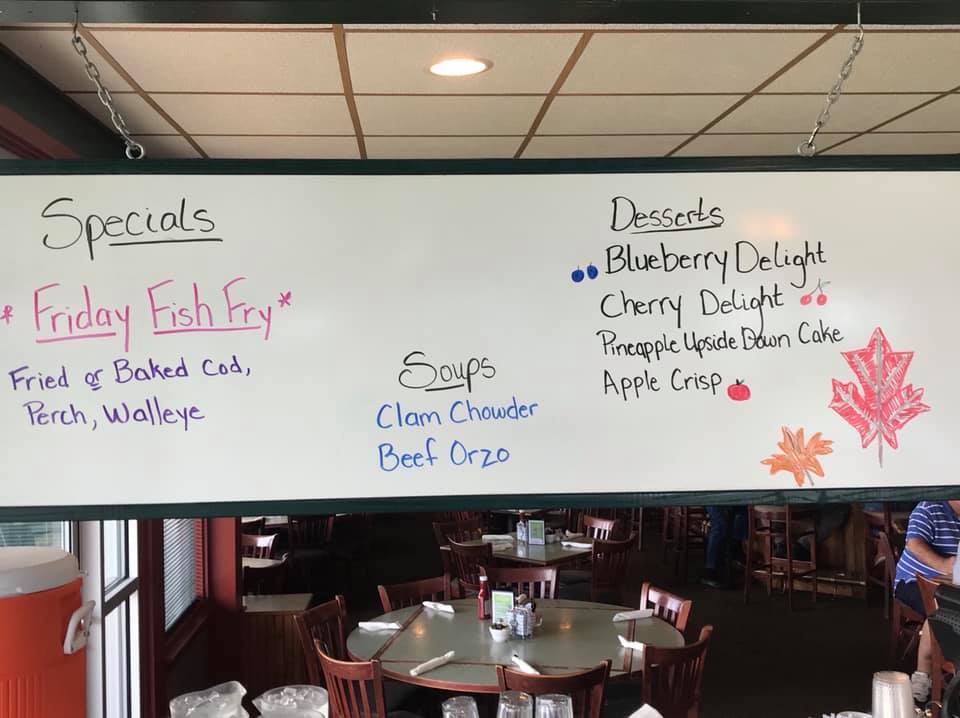 Specials
* Friday Fish Fry *
Fried or Baked Cod,
Perch, Walleye
Soups
Clam Chowder
Beef Orzo
Desserts
Blueberry Delight
Cherry Delight
Pineapple Upside Down Cake
Apple Crisp